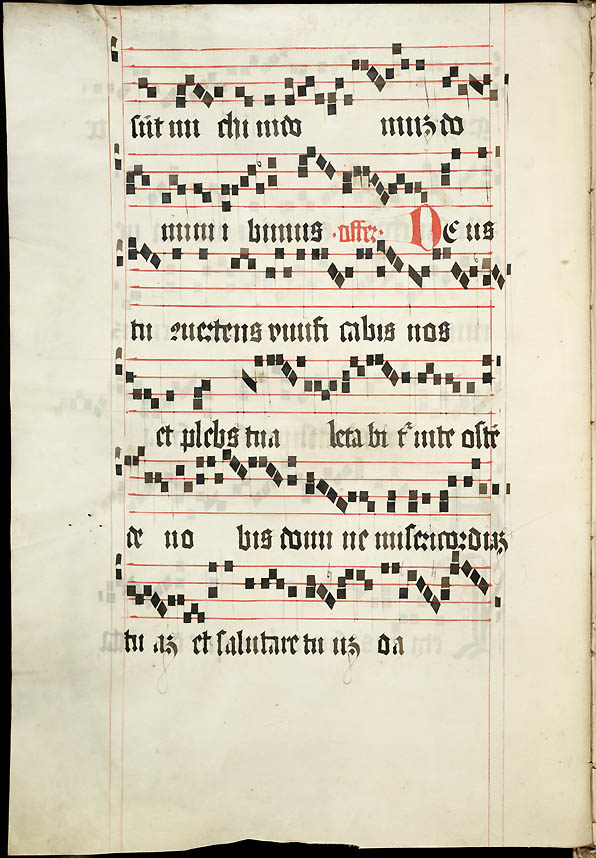 sūt mi chi indo muʒ do
mini i bimus ·offer· Deus
tu ꝯuertens viuifi cabis nos
et plebs tua leta bi tʳ inte ostē
de no bis domi ne misericordiaʒ
tu aʒ et salutare tu uʒ da